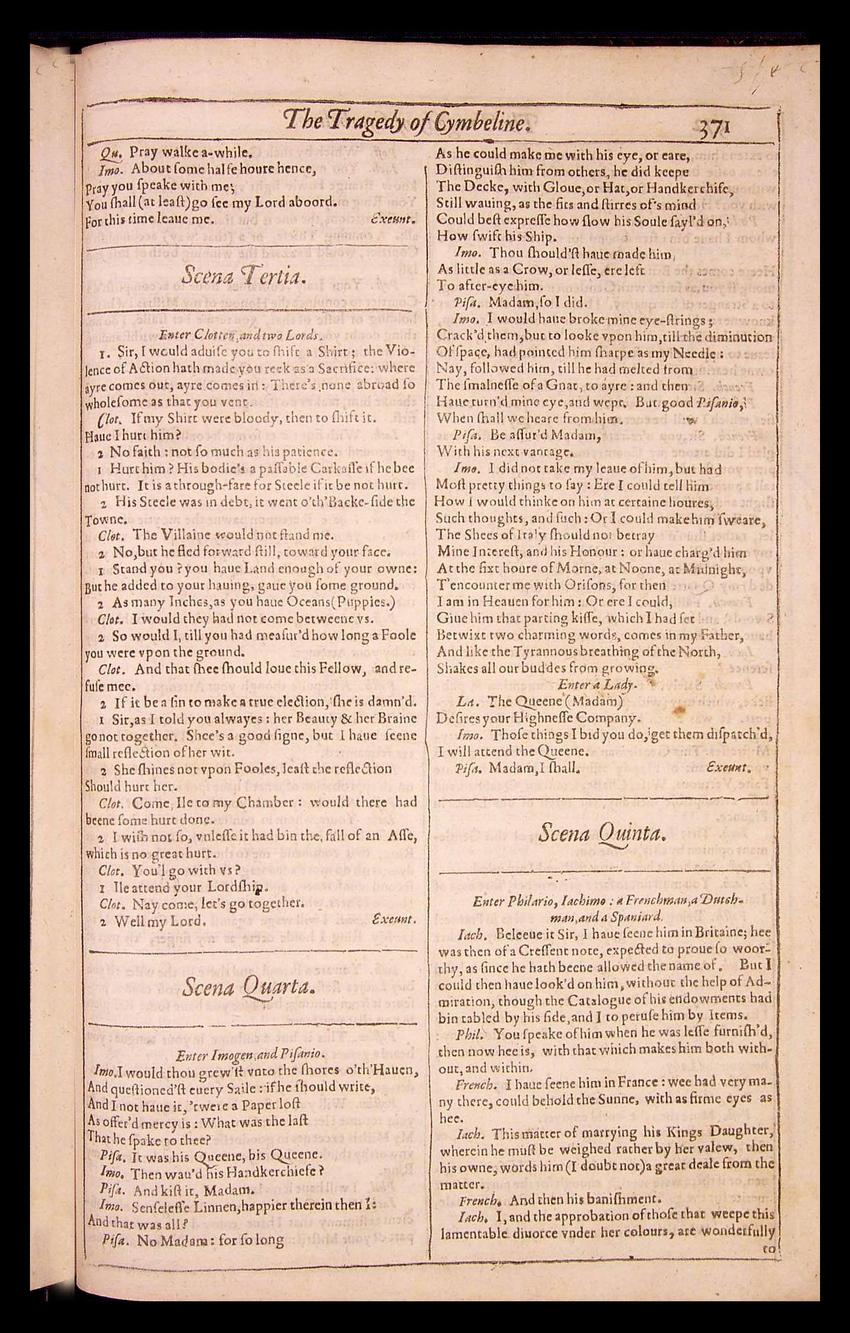 The Tragedy of Cymbeline.
371
Qu. Pray walke a-while.
Imo. About some halfe houre hence,
Pray you speake with me;
You shall (at least) go see my Lord aboord.
For this time leaue me. Exeunt.
Scena Tertia.
Enter Clotten, and two Lords.
1. Sir, I would aduise you to shift a Shirt; the Vio-
lence of Action hath made you reek as a Sacrifice: where
ayre comes out, ayre comes in: There's none abroad so
wholesome as that you vent.
Clot. If my Shirt were bloody, then to shift it.
Haue I hurt him?
2 No faith: not so much as his patience.
1 Hurt him? His bodie's a passable Carkasse if he bee
not hurt. It is a through-fare for Steele if it be not hurt.
2 His Steele was in debt, it went o'th'Backe-side the
Towne.
Clot. The Villaine would not stand me.
2 No, but he fled forward still, toward your face.
1 Stand you? you haue Land enough of your owne:
But he added to your hauing, gaue you some ground.
2 As many Inches, as you haue Oceans (Puppies.)
Clot. I would they had not come betweene vs.
2 So would I, till you had measur'd how long a Foole
you were vpon the ground.
Clot. And that shee should loue this Fellow, and re-
fuse mee.
2 If it be a sin to make a true election, she is damn'd.
1 Sir, as I told you alwayes: her Beauty & her Braine
go not together. Shee's a good signe, but I haue seene
small reflection of her wit.
2 She shines not vpon Fooles, least the reflection
Should hurt her.
Clot. Come, Ile to my Chamber: would there had
beene some hurt done.
2 I wish not so, vnlesse it had bin the fall of an Asse,
which is no great hurt.
Clot. You'l go with vs?
1 Ile attend your Lordship.
Clot. Nay come, let's go together.
2 Well my Lord. Exeunt.
Scena Quarta.
Enter Imogen, and Pisanio.
Imo. I would thou grew'st vnto the shores o'th'Hauen,
And questioned'st euery Saile: if he should write,
And I not haue it, 'twere a Paper lost
As offer'd mercy is: What was the last
That he spake to thee?
Pisa. It was his Queene, his Queene.
Imo. Then wau'd his Handkerchiefe?
Pisa. And kist it, Madam.
Imo. Senselesse Linnen, happier therein then I:
And that was all?
Pisa. No Madam: for so long
As he could make me with his eye, or eare,
Distinguish him from others, he did keepe
The Decke, with Gloue, or Hat, or Handkerchife,
Still wauing, as the fits and stirres of's mind
Could best expresse how slow his Soule sayl'd on,
How swift his Ship.
Imo. Thou should'st haue made him
As little as a Crow, or lesse, ere left
To after-eye him.
Pisa. Madam, so I did.
Imo. I would haue broke mine eye-strings;
Crack'd them, but to looke vpon him, till the diminution
Of space, had pointed him sharpe as my Needle:
Nay, followed him, till he had melted from
The smalnesse of a Gnat, to ayre: and then
Haue turn'd mine eye, and wept. But good Pisanio,
When shall we heare from him.
Pisa. Be assur'd Madam,
With his next vantage.
Imo. I did not take my leaue of him, but had
Most pretty things to say: Ere I could tell him
How I would thinke on him at certaine houres,
Such thoughts, and such: Or I could make him sweare,
The Shees of Italy should not betray
Mine Interest, and his Honour: or haue charg'd him
At the sixt houre of Morne, at Noone, at Midnight,
T'encounter me with Orisons, for then
I am in Heauen for him: Or ere I could,
Giue him that parting kisse, which I had set
Betwixt two charming words, comes in my Father,
And like the Tyrannous breathing of the North,
Shakes all our buddes from growing.
Enter a Lady.
La. The Queene (Madam)
Desires your Highnesse Company.
Imo. Those things I bid you do, get them dispatch'd,
I will attend the Queene.
Pisa. Madam, I shall. Exeunt.
Scena Quinta.
Enter Philario, Iachimo: a Frenchman, a Dutch-
man, and a Spaniard.
Iach. Beleeue it Sir, I haue seene him in Britaine; hee
was then of a Cressent note, expected to proue so woor-
thy, as since he hath beene allowed the name of. But I
could then haue look'd on him, without the help of Ad-
miration, though the Catalogue of his endowments had
bin tabled by his side, and I to peruse him by Items.
Phil. You speake of him when he was lesse furnish'd,
then now hee is, with that which makes him both with-
out, and within.
French. I haue seene him in France: wee had very ma-
ny there, could behold the Sunne, with as firme eyes as
hee.
Iach. This matter of marrying his Kings Daughter,
wherein he must be weighed rather by her valew, then
his owne, words him (I doubt not) a great deale from the
matter.
French. And then his banishment.
Iach. I, and the approbation of those that weepe this
lamentable diuorce vnder her colours, are wonderfully
to